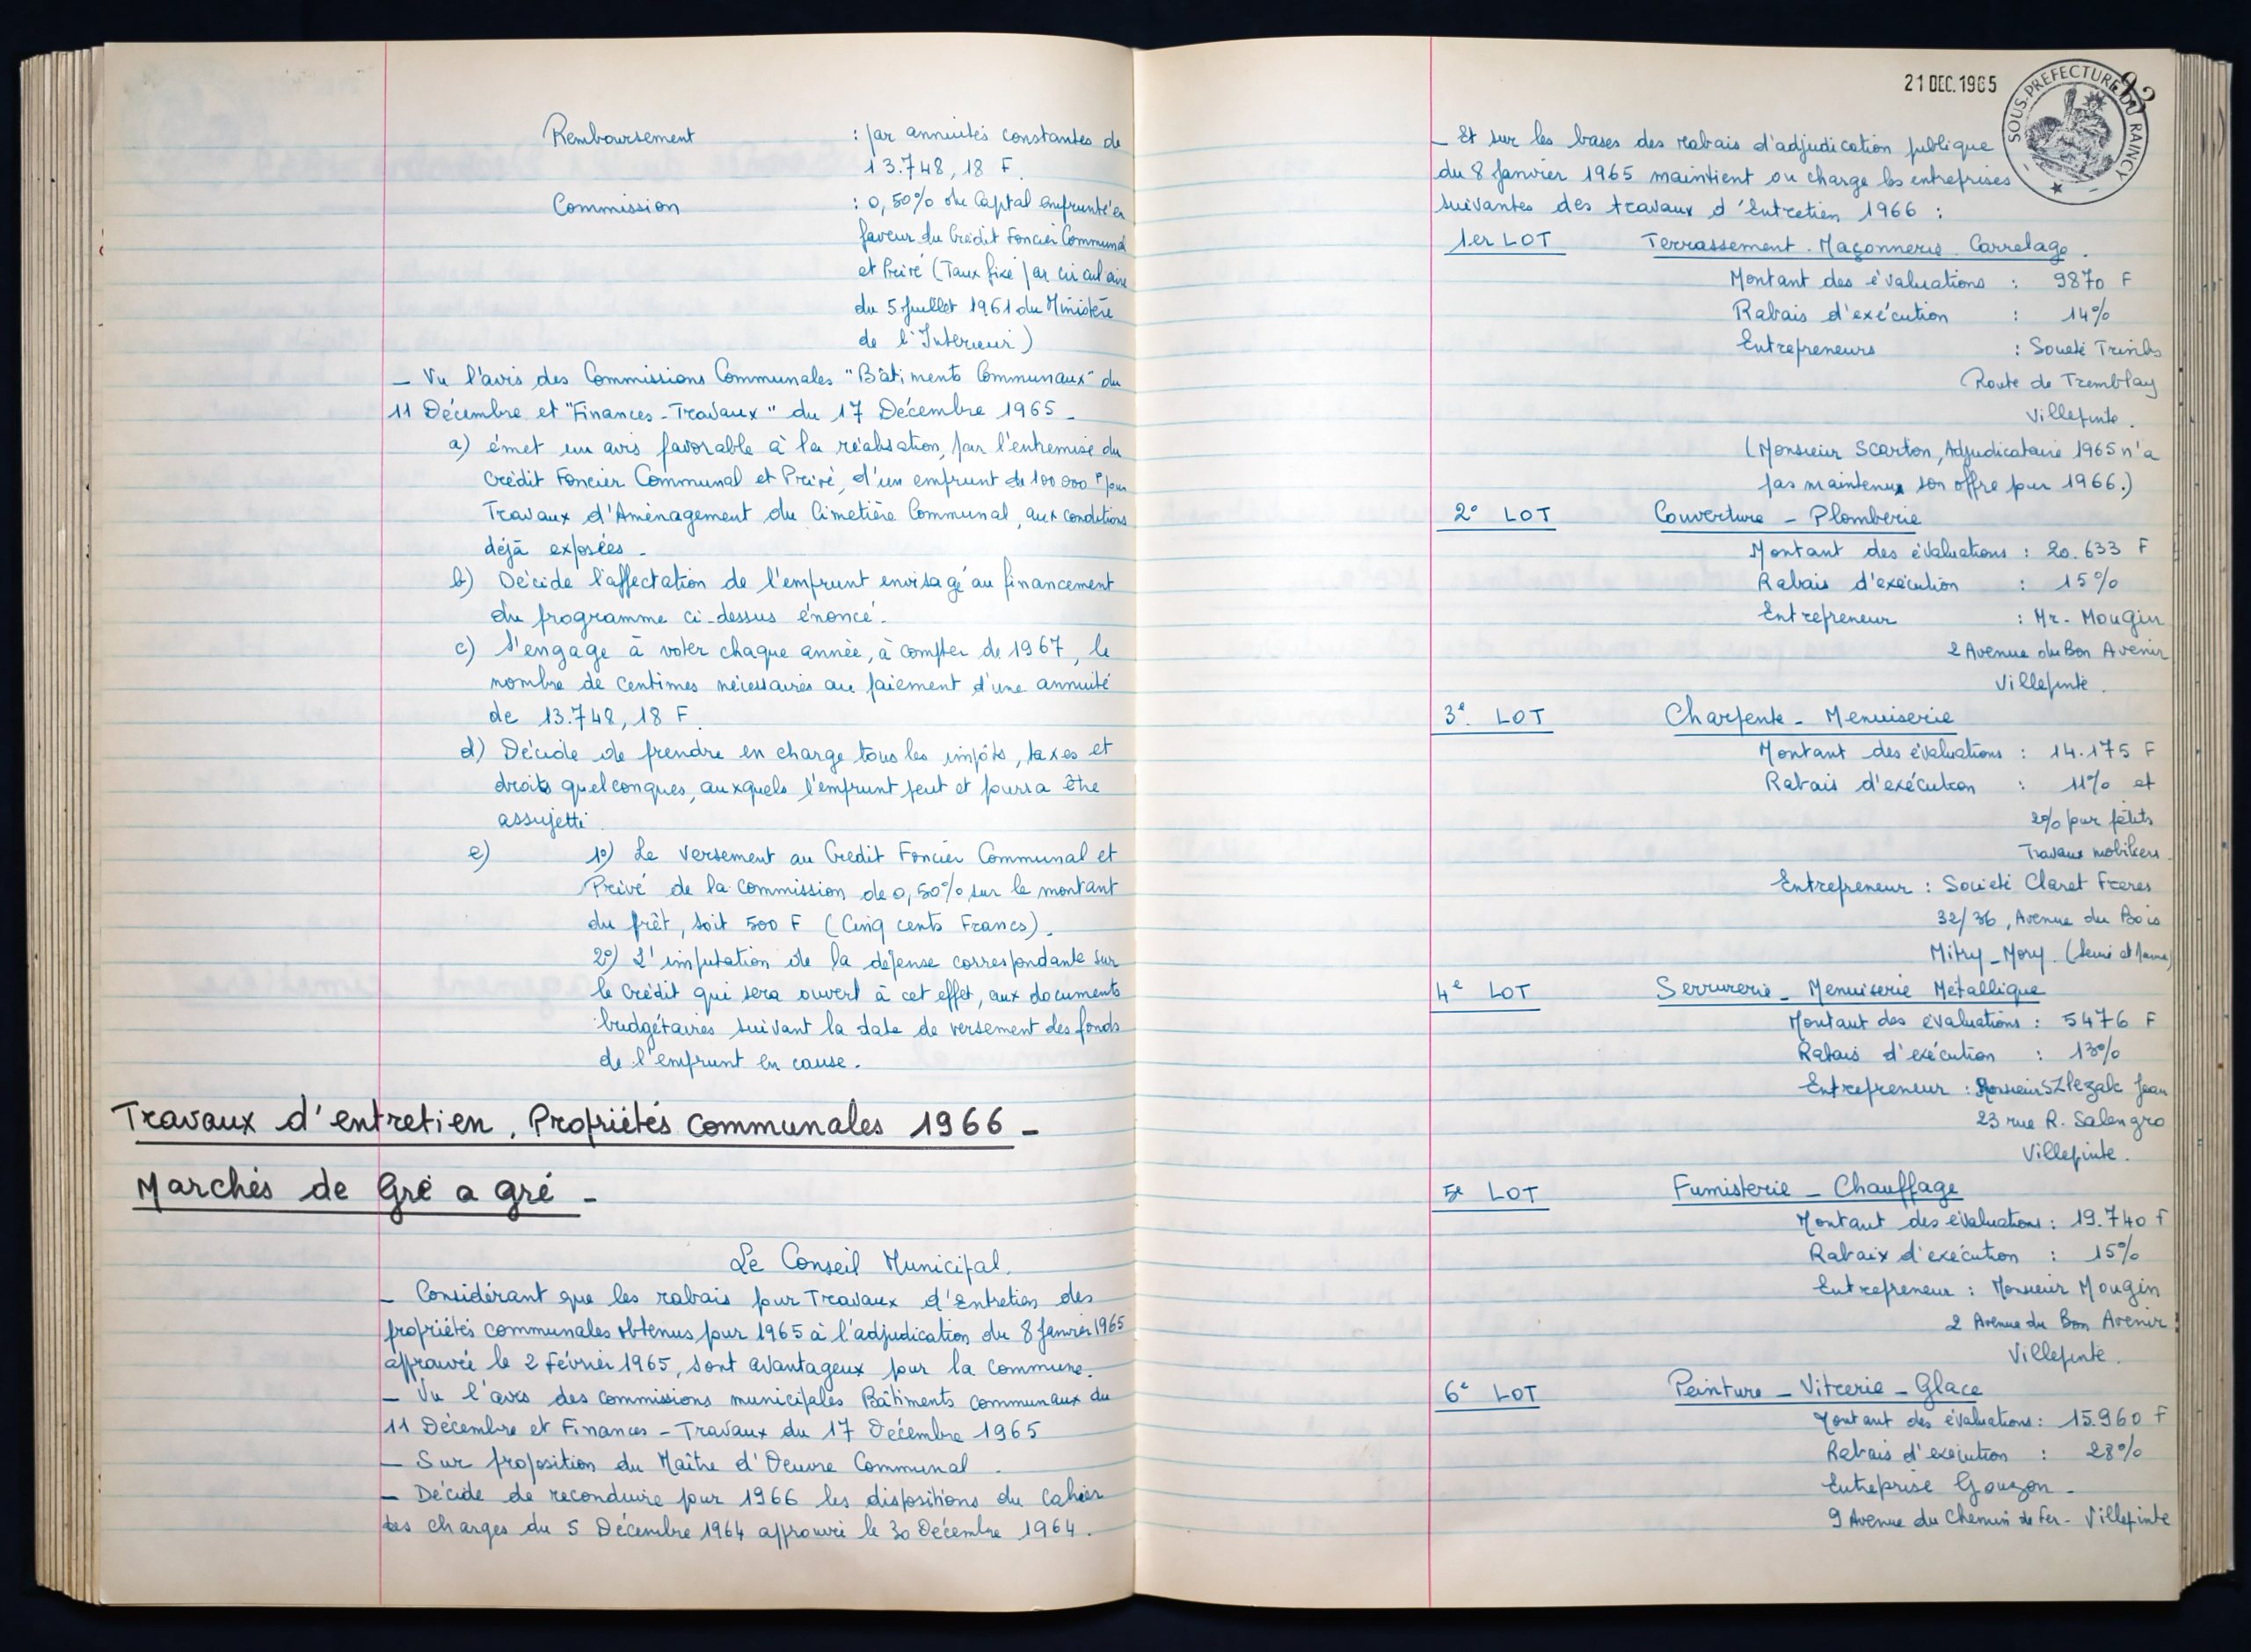 Remboursement : par annuités constantes de
13.748,18 F.
Commission : 0,50% du Capital emprunté en
faveur du Crédit Foncier Communal
et Privé (Taux fixé par circulaire
du 5 Juillet 1961 du Ministère
de l'Interieur)
- Vu l'avis des Commissions Communales "Bâtiments Communaux" du
11 Décembre et "Finances-Travaux" du 17 Décembre 1965 -
a) émet un avis favorable à la réalisation, par l'entremise du
Crédit Foncier Communal et Privé, d'un emprunt de 100 000 F pour
Travaux d'Aménagement du Cimetière Communal, aux conditions
déjà exposées -
b) Décide l'affectation de l'emprunt envisagé au financement
du programme ci-dessus énoncé.
c) S'engage à voter chaque année, à compter de 1967, le
nombre de centimes nécessaires au paiement d'une annuité
de 13.748,18 F.
d) Décide de prendre en charge tous les impôts, taxes et
droits quelconques, auxquels l'emprunt peut et pourra être
assujetti
e) 1°) Le versement au Credit Foncier Communal et
Privé de la commission de 0,50% sur le montant
du prêt, soit 500 F (Cinq cents Francs).
2°) L'imputation de la dépense correspondante sur
le Crédit qui sera ouvert à cet effet, aux documents
budgétaires suivant la date de versement des fonds
de l'emprunt en cause.
Travaux d'entretien. Propriétés communales 1966 -
Marchés de Gré a gré -
Le Conseil Municipal.
- Considérant que les rabais pour Travaux d'Entretien des
propriétés communales obtenus pour 1965 à l'adjudication du 8 Janvier 1965
approuvée le 2 Février 1965, sont avantageux pour la commune.
- Vu l'avis des commissions municipales Bâtiments communaux du
11 Décembre et Finances - Travaux du 17 Décembre 1965
- Sur proposition du Maître d'Oeuvre Communal.
- Décide de reconduire pour 1966 les dispositions du Cahier
des charges du 5 Décembre 1964 approuvé le 30 Décembre 1964.
21 DEC. 1965
SOUS-PREFECTURE DU RAINCY
- Et sur les bases des rabais d'adjudication publique
du 8 Janvier 1965 maintient ou charge les entreprises
suivantes des travaux d'Entretien 1966 :
1er LOT Terrassement. Maçonnerie. Carrelage.
Montant des évaluations : 9870 F
Rabais d'exécution : 14%
Entrepreneurs : Société
Route de Tremblay
Villepinte.
(Monsieur Scarton, Adjudicataire 1965 n'a
pas maintenu son offre pour 1966.)
2° LOT Couverture - Plomberie
Montant des évaluations : 20.633 F
Rabais d'exécution : 15%
Entrepreneur : Mr. Mougin
2 Avenue du Bon Avenir
Villepinte.
3e. LOT Charpente - Menuiserie
Montant des évaluations : 14.175 F
Rabais d'exécution : 11% et
2% pour petits
Travaux mobiliers.
Entrepreneur : Société Claret Frères
32/36, Avenue du Bois
Mitry-Mory. (Seine et Marne)
4e LOT Serrurerie - Menuiserie Métallique
Montant des évaluations : 5476 F
Rabais d'exécution : 13%
Entrepreneur : Monsieur Szlezak Jean
23 rue R. Salengro
Villepinte.
5e LOT Fumisterie - Chauffage
Montant des évaluations : 19.740 F
Rabaix d'exécution : 15%
Entrepreneur : Monsieur Mougin
2 Avenue du Bon Avenir
Villepinte.
6e LOT Peinture - Vitrerie - Glace
Montant des évaluations : 15.960 F
Rabais d'exécution : 28%
Entreprise Gouzon -
9 Avenue du Chemin de Fer - Villepinte